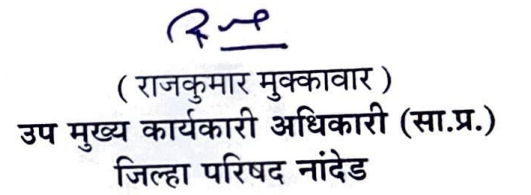 ( राजकुमार मुक्कावार )
उप मुख्य कार्यकारी अधिकारी (सा.प्र.)
जिल्हा परिषद नांदेड